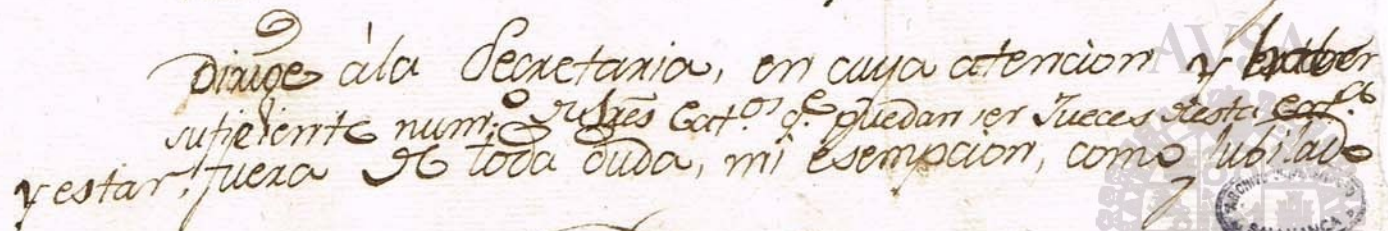 Dirige àla Secretaria, en cuya atencion y haber
suficiente num.o de Sres Cat.os q.e puedan ser Jueces desta Cat.a
y estar fuera de toda duda, mi esempcion, como Jubilado
AVSA
SALAMANCA